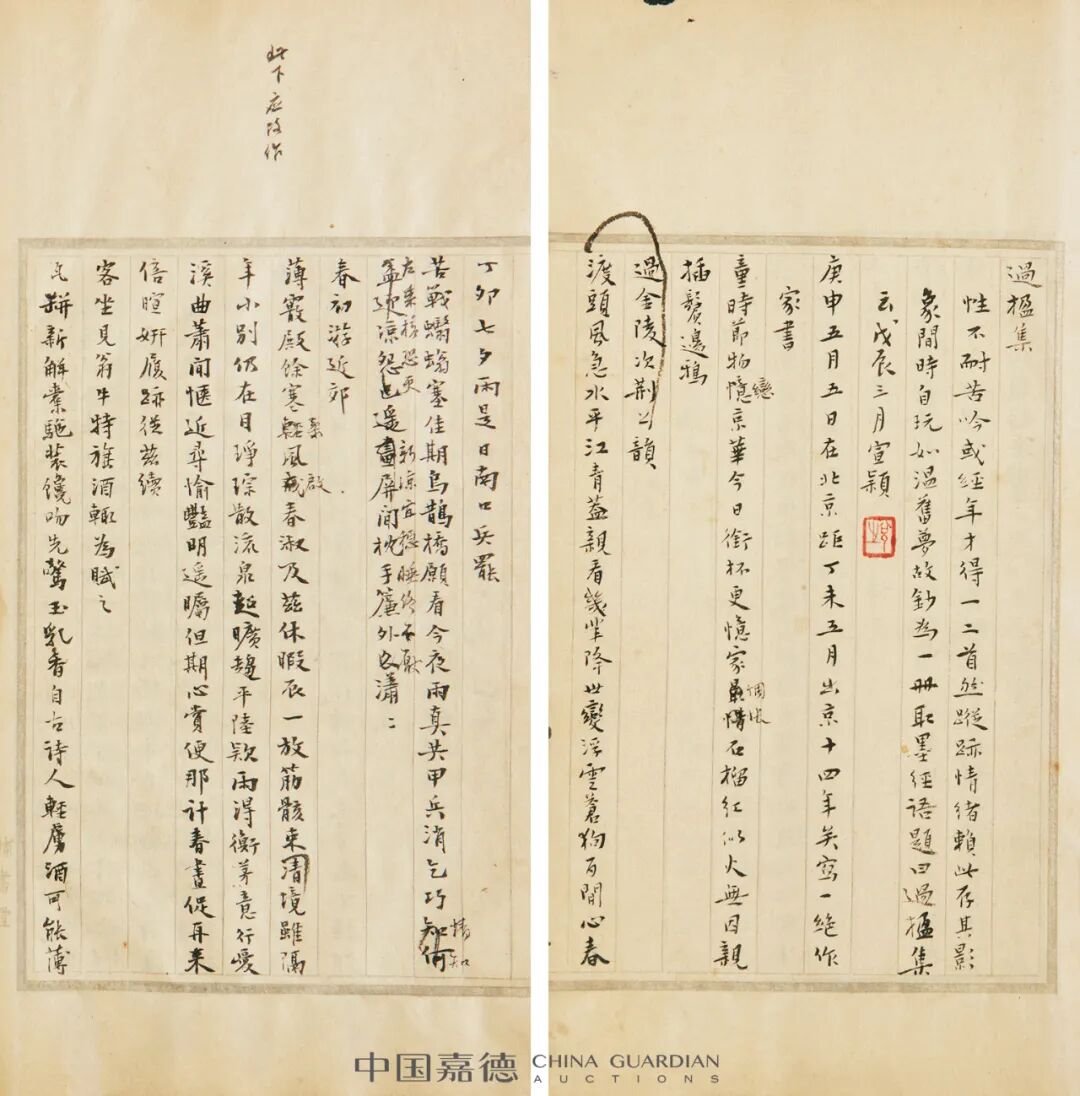 過楹集
性不耐苦吟或經年才得一二首然蹤跡情緒賴此存其影
象閒時自玩如溫舊夢故鈔為一冊取墨經語題曰過楹集
云戊辰三月宣穎
庚申五月五日在北京距丁未五月出京十四年矣寫一絕作
家書
童時節物憶京華今日銜杯更憶家惆悵石榴紅似火無因親
戀
插鬢邊鴉
過金陵次荊公韻
渡頭風急水平江青蓋親看幾輩降世變浮雲蒼狗百閒心春
此下應改作
丁卯七夕雨是日南口兵罷
苦戰蠮螉塞佳期烏鵲橋願看今夜雨真共甲兵消乞巧知何
情知
新涼宜穩睡終不厭瀟瀟
春初游近郊
薄霰殿餘寒輕風戒春淑及茲休暇辰一放筋骸束清境雖隔
啟
年小別仍在目琤琮散流泉超曠趨平陸欵雨得衡茅意行愛
溪曲蕭閒愜近尋愉豔明遥矚但期心賞便那計春晝促再來
倍暄妍屐跡從茲續
客坐見翁牛特旗酒輒為賦之
新解橐駞裝饞吻先驚玉乳香自古詩人輕虜酒可能薄
中国嘉德 CHINA GUARDIAN
AUCTIONS